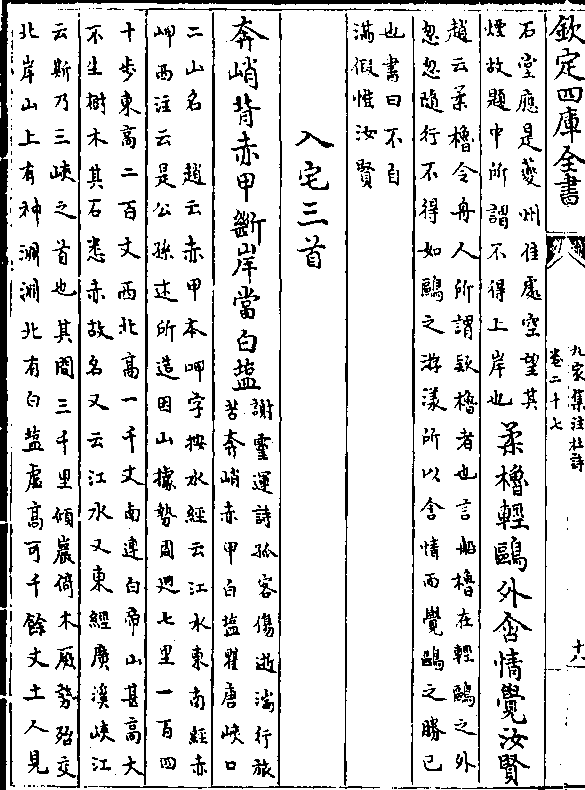 欽定四庫全書
九家集注杜詩
卷二十七
十八
石堂應是夔州住處空望其
煙故題中所謂不得上岸也
柔櫓輕鷗外含情覺汝賢
趙云柔櫓今舟人所謂欵櫓者也言船櫓在輕鷗之外
忽忽隨行不得如鷗之游漾所以含情而覺鷗之勝已
也書曰不自
滿假惟汝賢
入宅三首
奔峭背赤甲斷岸當白鹽
謝靈運詩孤客傷逝湍行旅
苦奔峭赤甲白鹽瞿唐峽口
二山名　趙云赤甲本岬字按水經云江水東南經赤
岬西注云是公孫述所造因山據勢周迴七里一百四
十步東高二百丈西北高一千丈南連白帝山甚高大
不生樹木其石悉赤故名又云江水又東經廣溪峽江
云斯乃三峽之首也其間三千里傾巖倚木厥勢殆交
北岸山上有神淵淵北有白鹽處高可千餘丈土人見